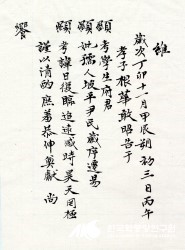 維
歲次丁卯十一月甲辰朔初三日丙午
孝子根華敢昭告于
顯考學生府君
顯妣孺人坡平尹氏歲序遷易
顯考諱日復臨追遠感時昊天罔極
謹以淸酌庶羞恭伸奠獻 尙
饗